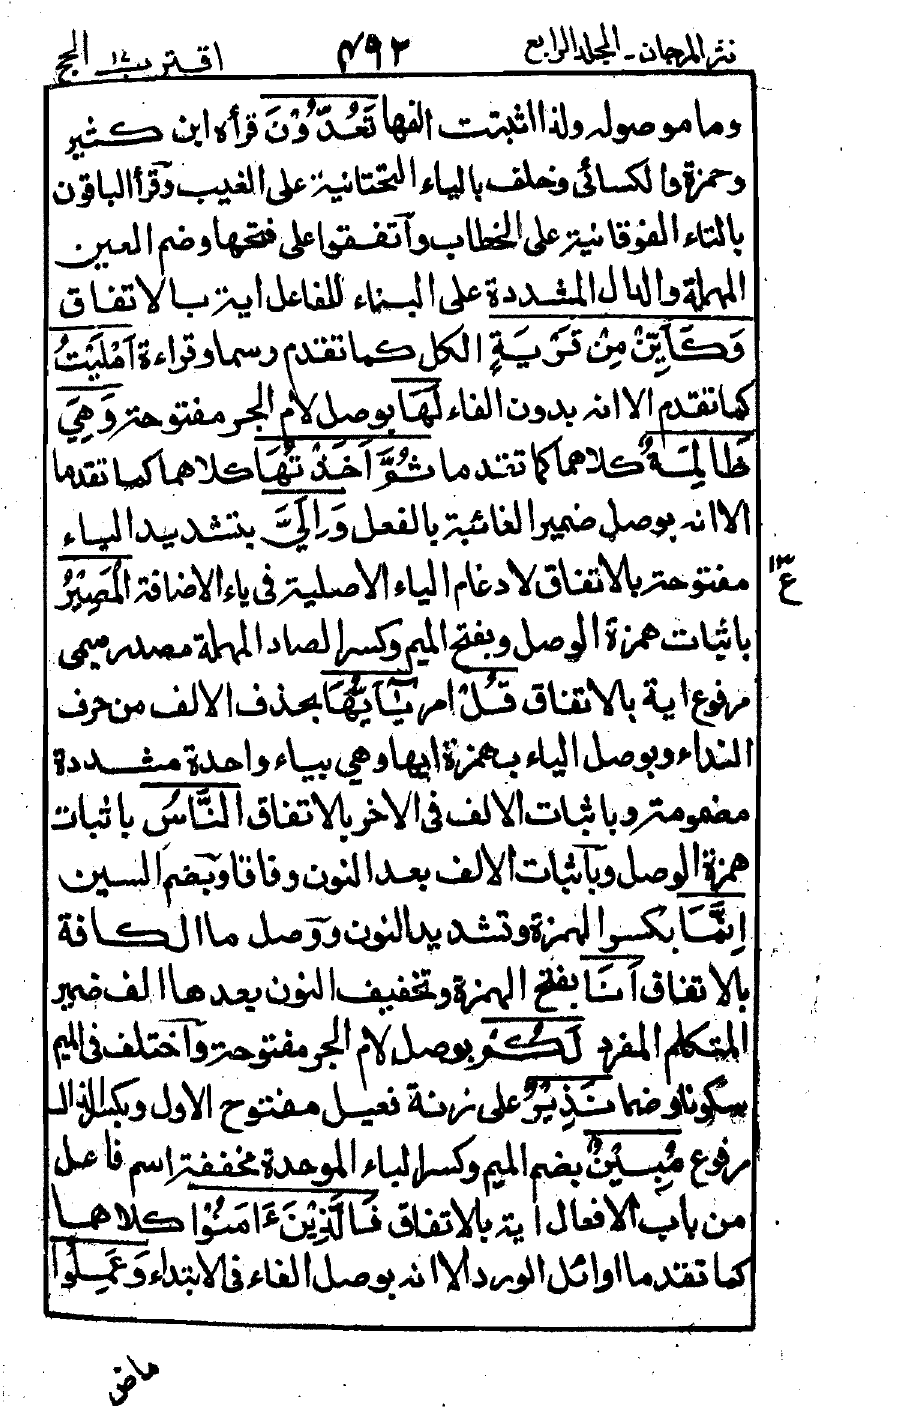 نثر المرجان - المجلد الرابع ٤٩٢ اقترب ١٧ الحج
وما موصوله ولذا اثبتت الفها تَعُدُّوْنَ قرأه ابن كثير
وحمزة والكسائى وخلف بالياء التحتانية على الغيب وقرأ الباقون
بالتاء الفوقانية على الخطاب واتفقوا على فتحها وضم العين
المهملة والدال المشددة على البناء للفاعل اية بالاتفاق
وَكَاَيِّنْ مِنْ قَرْيَةٍ الكل كما تقدم رسما وقراءة اَمْلَيْتُ
كما تقدم الا انه بدون الفاء لَهَا بوصل لام الجر مفتوحة وَهِيَ
ظَالِمَةٌ كلاهما كما تقدما ثُمَّ اَخَذْتُهَا كلاهما كما تقدما
الا انه بوصل ضمير الغائبة بالفعل وَاِلَيَّ بتشديد الياء
مفتوحة بالاتفاق لادغام الياء الاصلية فى ياء الاضافة الْمَصِيْرُ
باثبات همزة الوصل وبفتح الميم وكسر الصاد المهملة مصدر ميمى
مرفوع اية بالاتفاق قُلْ امر يٰٓاَيُّهَا بحذف الالف من حرف
النداء وبوصل الياء بهمزة ايها وهي بياء واحدة مشددة
مضمومة وباثبات الالف فى الاخر بالاتفاق النَّاسُ باثبات
همزة الوصل وباثبات الالف بعد النون وفاقا وبضم السين
اِنَّمَا بكسر الهمزة وتشديد النون ووصل ما الكافة
بالاتفاق اَنَا بفتح الهمزة وتخفيف النون بعدها الف ضمير
المتكلم المفرد لَكُمْ بوصل لام الجر مفتوحة واختلف فى الميم
سكونا وضما نَذِيْرٌ على زنة فعيل مفتوح الاول وبكسر الذال
مرفوع مُبِيْنٌ بضم الميم وكسر الباء الموحدة مخففة اسم فاعل
من باب الافعال اية بالاتفاق فَالَّذِيْنَ ءَامَنُوْا كلاهما
كما تقدما اوائل الورد الا انه بوصل الفاء فى الابتداء وَعَمِلُوا
ع ١٣
ماض